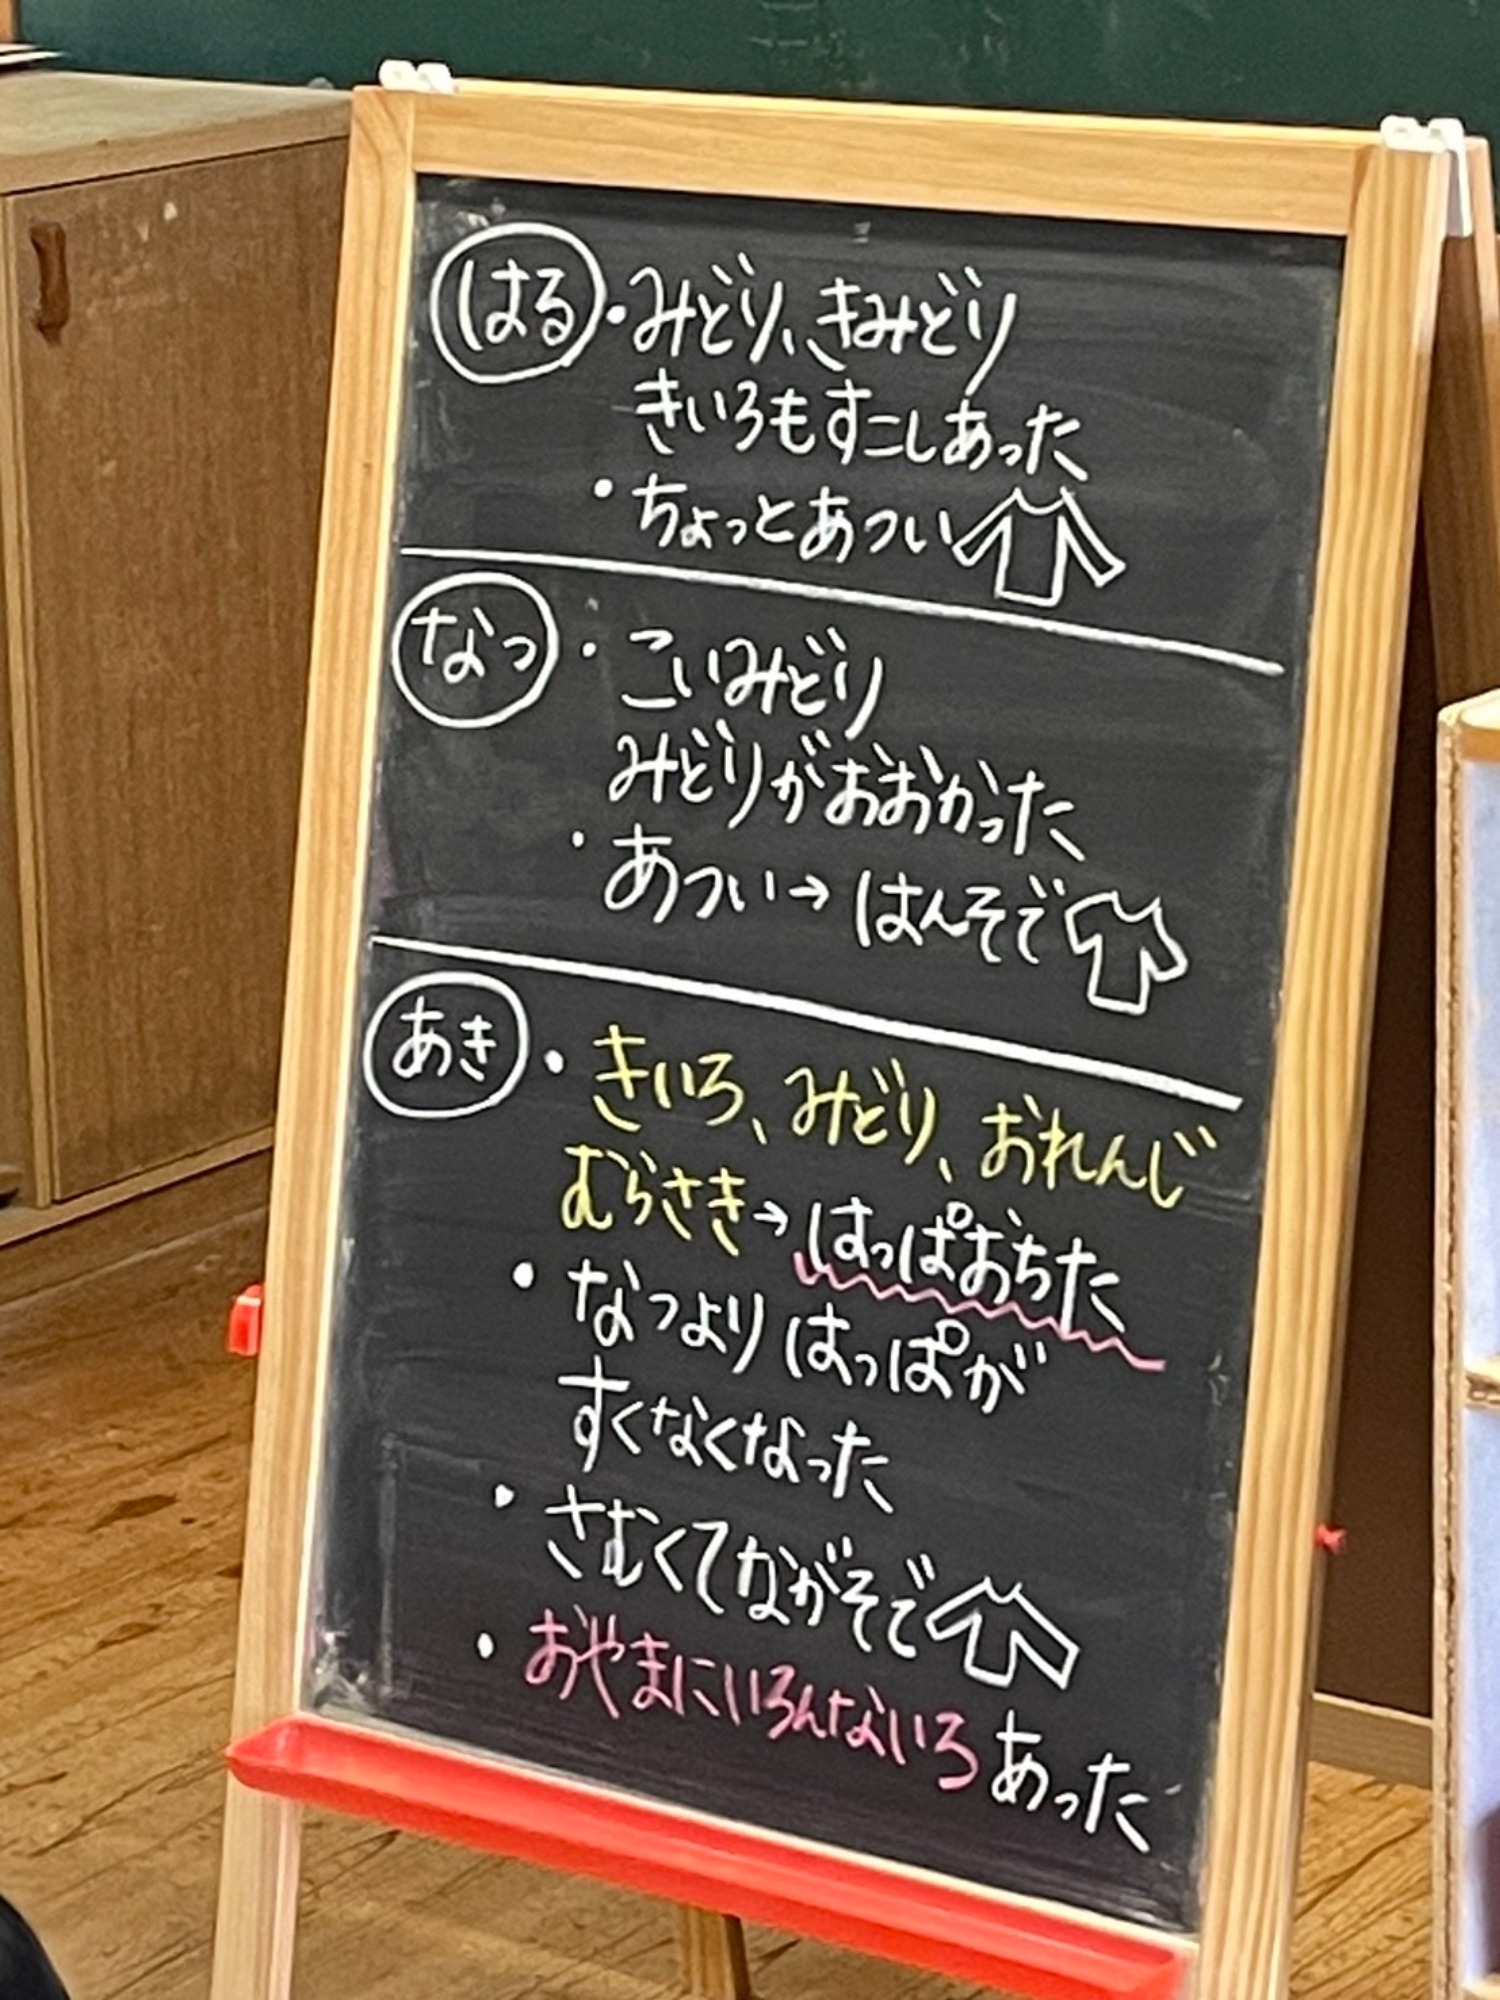 はる ・みどり、きみどり
きいろもすこしあった
・ちょっとあつい
なつ ・こいみどり
みどりがおおかった
・あつい→はんそで
あき ・きいろ、みどり、おれんじ
むらさき→はっぱおちた
・なつよりはっぱが
すくなくなった
・さむくてながそで
・おやまにいろんないろあった